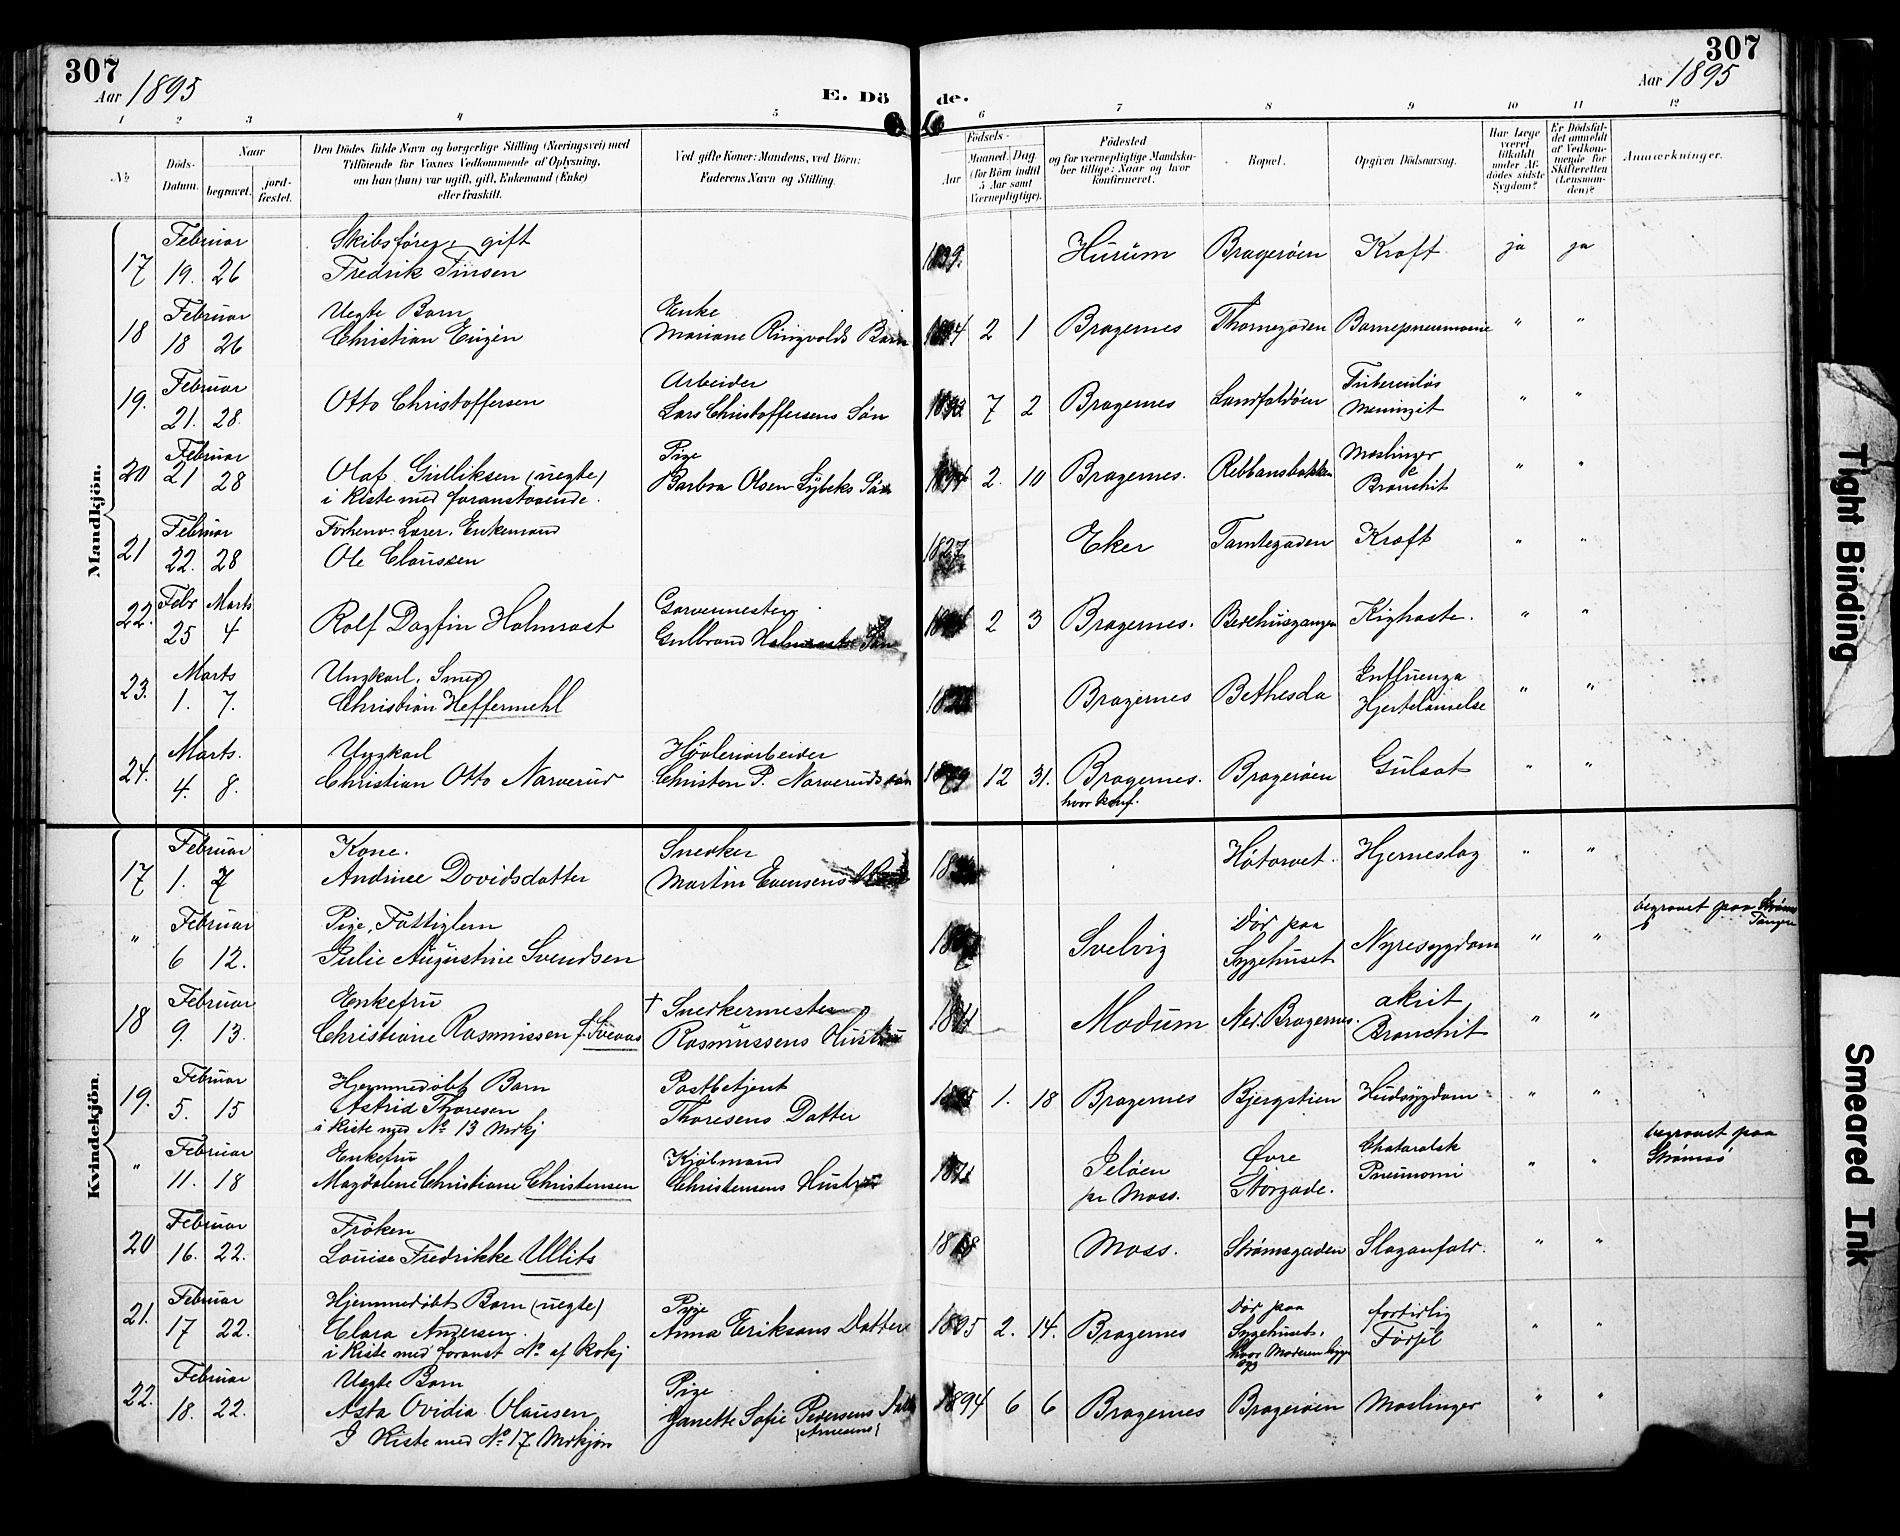 307
Aar 1895
E. Dö
de.
307
Aar 1895
1 2 3 4 5 6 7 8 9 10 11 12
No
Döds-Datum.
Naar
begravet.
jord-fæstet.
Den Dödes fulde Navn og borgerlige Stilling (Næringsvei) med
Tilföiende for Voxnes Vedkommende af Oplysning,
om han (hun) var ugift, gift, Enkemand (Enke)
eller fraskilt.
Ved gifte Koner: Mandens, ved Börn:
Faderens Navn og Stilling.
Födsels-
Aar
Maaned. Dag.
(for Börn indtil
5 Aar samt
Værnepligtige).
Födested
og for værnepligtige Mandska-
ber tillige: Naar og hvor
konfirmeret.
Bopæl.
Opgiven Dödsaarsag.
Har Læge
været
tilkaldt
under Af-
dödes sidste
Sygdom?
Er Dödsfal-
det anmeldt
af Vedkom-
mende for
Skifteretten
(Lensman-
den)?
Anmærkninger.
Mandkjön.
Februar Skibsfører, gift
17 19. 26 Fredrik Tinsen 1839. Hurum Bragerøen Kræft ja ja
Februar Uegte Barn Enke
18 18 26 Christian Eugén Mariane Ringvolds Barn 1894 2 1 Bragernes Thornegaden Barnepneumonie " "
Februar Arbeider Tuberculøs
19. 21. 28. Otto Christoffersen Lars Christoffersens Søn 7 2 Bragernes Landfaldøen Meningit " "
Februar Pige Mæslinger
20 21 28 Olaf Gulliksen (uegte) Barbra Olsen Lybeks Søn 1894 2. 10 Bragernes. Rebbansbakken & " "
i Kiste med foranstaaende. Bronchit
Februar Forhenv. Lærer, Enkemand
21 22. 28 Ole Claussen 1827 Eker Tomtegaden Kræft " "
Febr Marts Garvermester
22. 25 4 Rolf Dagfin Holmraast Gulbrand Holmraasts Søn 2 3 Bragernes. Berehusgangen Kighoste. " "
Marts Ungkarl, Smed Influenza
23. 1. 7. Christian Heffermehl Bragernes Bethesda Hjertelamelse " "
Marts. Ungkarl Høvleriarbeider
24. 4. 8. Christian Otto Narverud Christen P. Narveruds søn 1879 12 31. Bragernes. Bragerøen Gulsot " "
hvor konf.
Kvindekjön.
Februar Kone. Snedker
17 1. 7 Andrine Davidsdatter Martin Evensens Høtorvet. Hjerneslag " "
Februar Pige, Fattiglem Dør paa begravet paa Strøms
" 6 12. Julie Augustine Svendsen Svelvig Sygehuset Nyresygdom " " Tangen
Februar Enkefru † Snedkermester akut
18 9. 13. Christiane Rasmussen f. Sveaas Rasmussens Hustru Modum Ned. Bragernes. Bronchit " "
Februar Hjemmedøbt Barn Postbetjent
19. 5. 15 Astrid Thoresen Thoresens Datter 1895 1. 18 Bragernes Bjergstien Hudsygdom " "
i Kiste med No 13 Mdkj
Februar Enkefru Kjølmand Øvre Chataralsk begravet paa
" 11. 18 Magdalene Christiane Christensen Christensens Hustru Jeløen Storgade. Pneumoni " " Strømsø
pr Moss.
Februar Frøken
20 16. 22. Louise Fredrikke Ullits 1818 Moss. Strømsgaden Slaganfald. " "
Februar Hjemmedøbt Barn (uegte) Pige Dør paa fortidlig
21. 17 22. Clara Andersen. Anna Eriksens Datter 1895 2. 14. Bragernes Sygehuset, Fødsel " "
i Kiste med foranst No af Kvkj hvor Moderen ligger
syg
Februar Uegte Barn Pige
22. 18. 22. Asta Ovidia Olausen Janette Sofie Pedersens Datter 1894 6 6 Bragernes Bragerøen Mæslinger " "
I Kiste med No 17 Mdkjøn (Arnesens)
Tight Binding
Smeared Ink